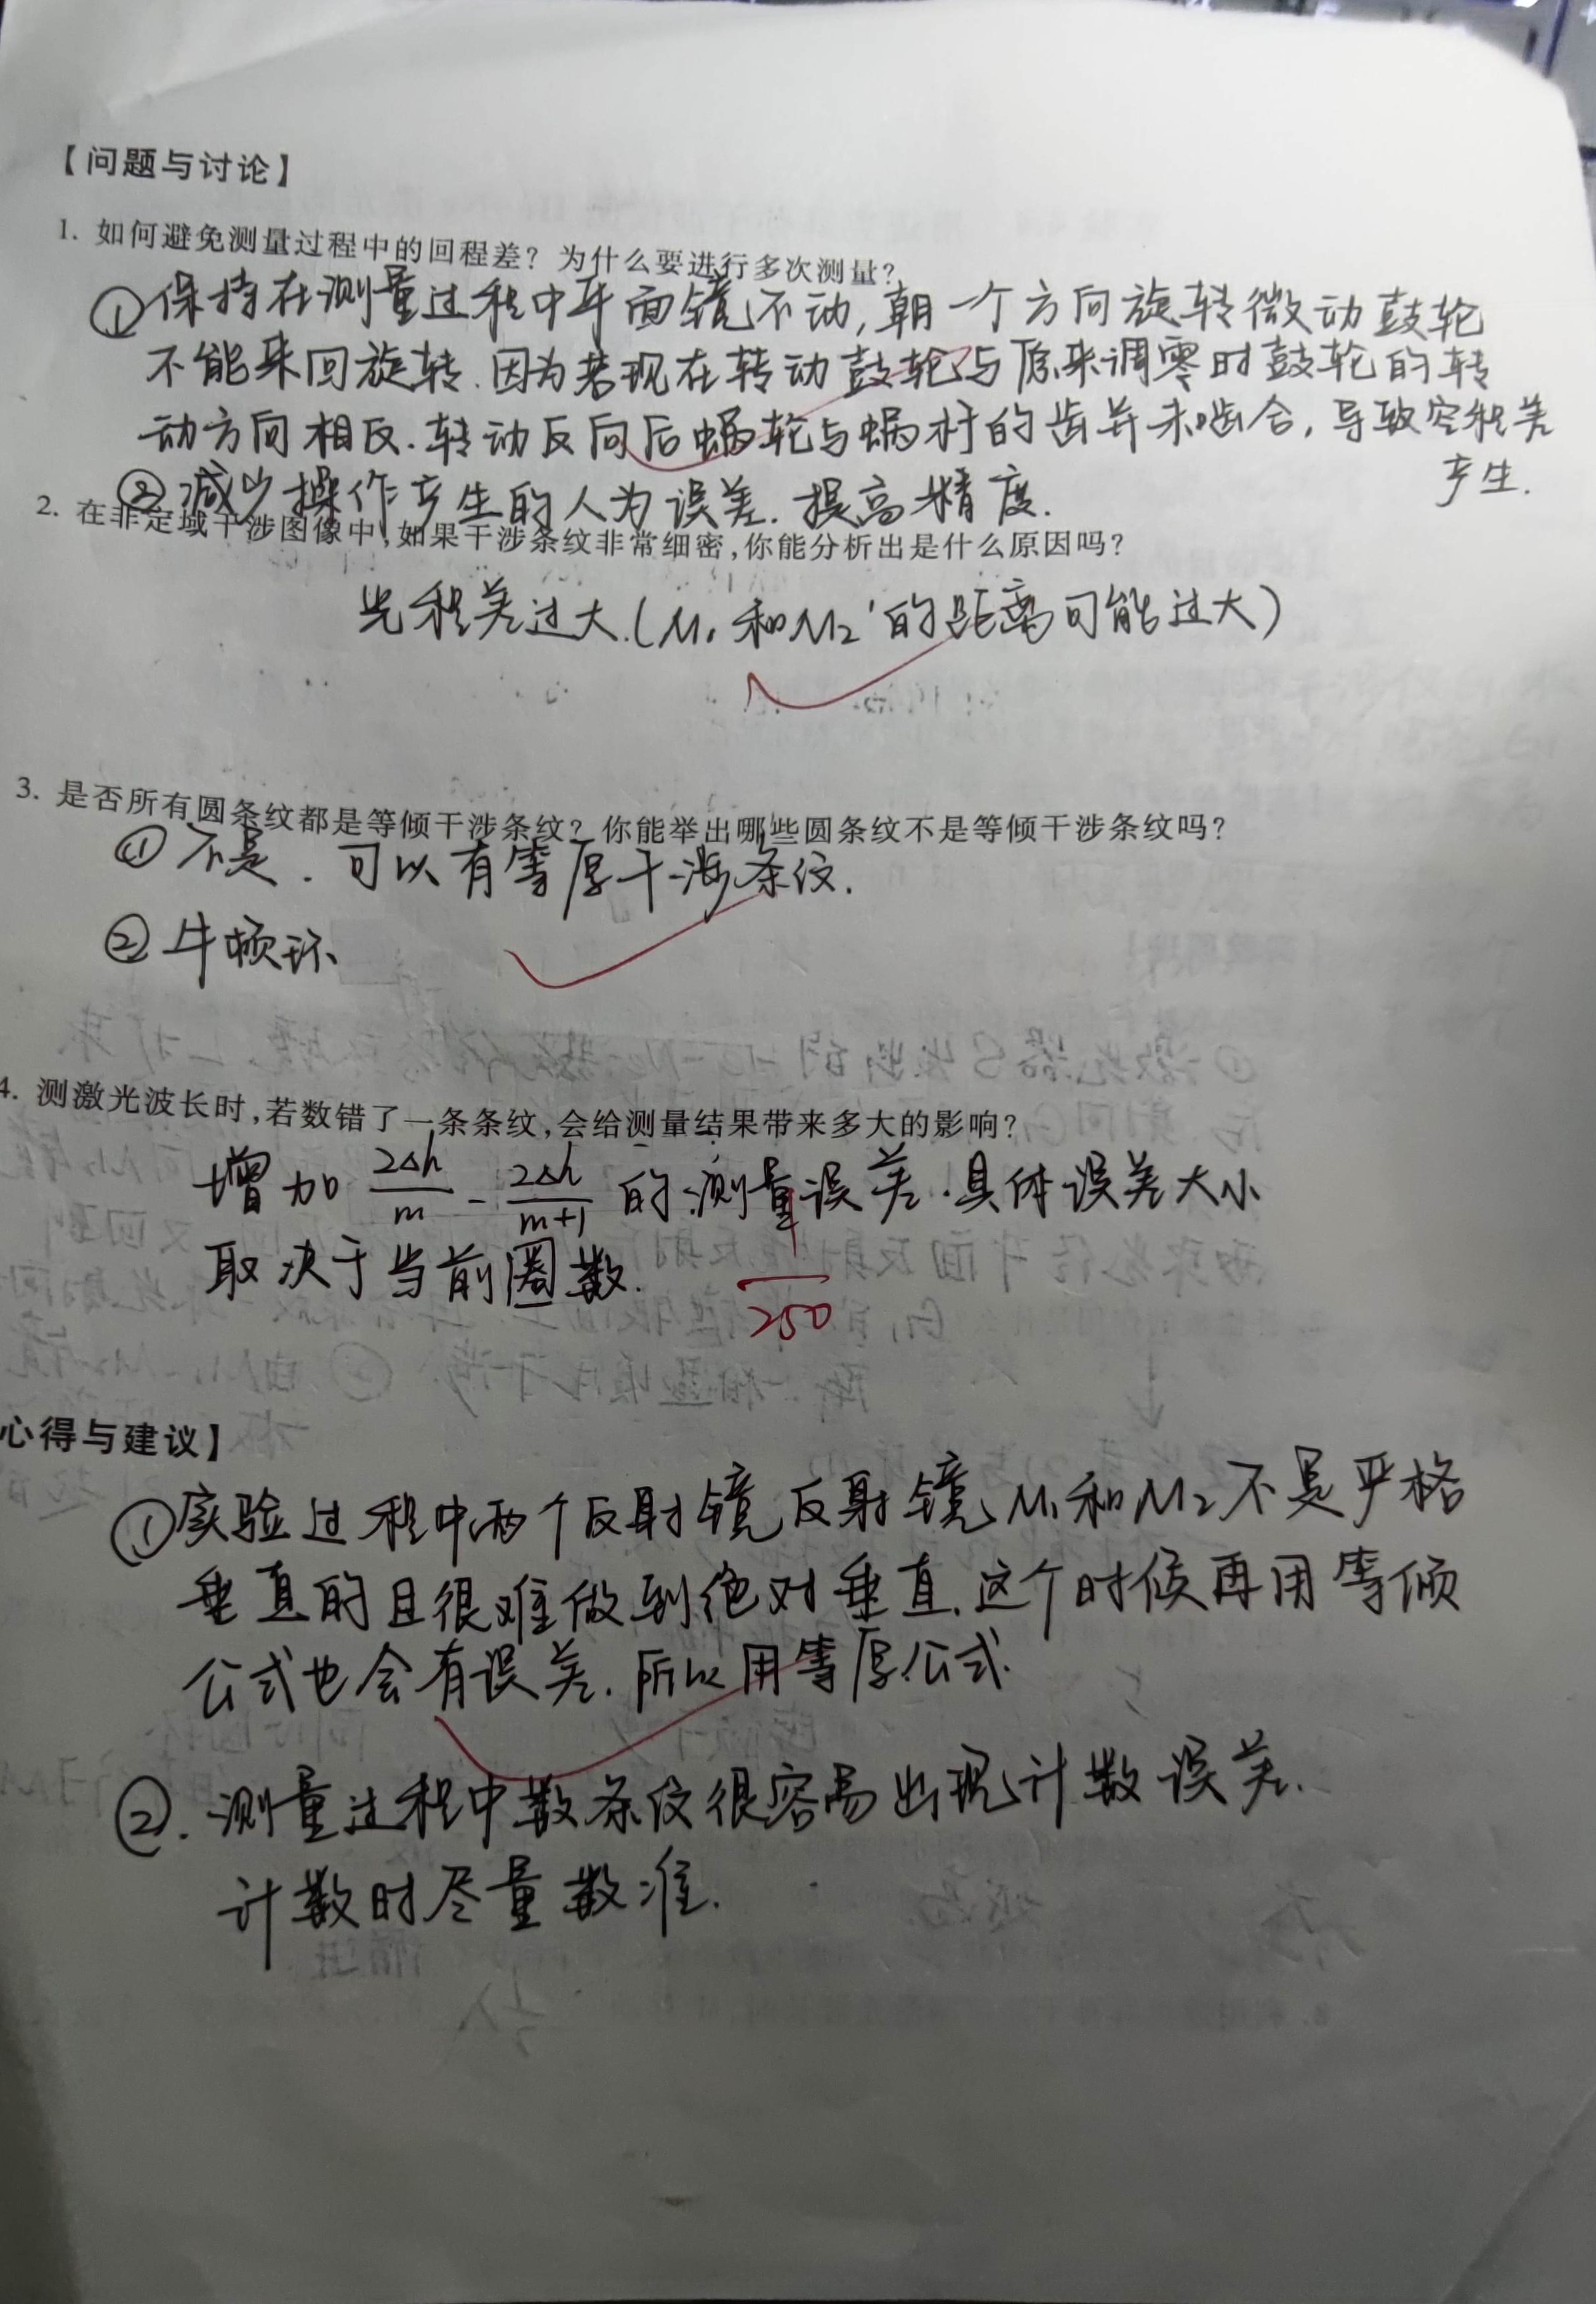 【问题与讨论】
1. 如何避免测量过程中的回程差？为什么要进行多次测量？
①保持在测量过程中平面镜不动,朝一个方向旋转微动鼓轮
不能来回旋转.因为若现在转动鼓轮与原来调零时鼓轮的转
动方向相反.转动反向后蜗轮与蜗杆的齿并未啮合,导致空程差
产生.
②减少操作产生的人为误差.提高精度.
2. 在非定域干涉图像中,如果干涉条纹非常细密,你能分析出是什么原因吗？
光程差过大.(M₁和M₂'的距离可能过大)
3. 是否所有圆条纹都是等倾干涉条纹？你能举出哪些圆条纹不是等倾干涉条纹吗？
①不是.可以有等厚干涉条纹.
②牛顿环
4. 测激光波长时,若数错了一条条纹,会给测量结果带来多大的影响？
增加 2Δh/m - 2Δh/(m+1) 的测量误差.具体误差大小
取决于当前圈数.
1/250
心得与建议】
①实验过程中两个反射镜反射镜M₁和M₂不是严格
垂直的且很难做到绝对垂直.这个时候再用等倾
公式也会有误差.所以用等厚公式.
②.测量过程中数条纹很容易出现计数误差.
计数时尽量数准.